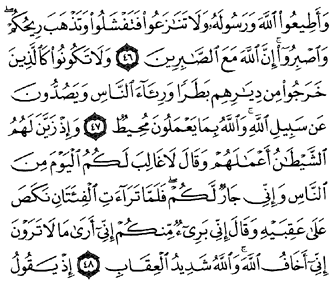 وَأَطِيعُوا۟ ٱللَّهَ وَرَسُولَهُۥ وَلَا تَنَٰزَعُوا۟ فَتَفْشَلُوا۟ وَتَذْهَبَ رِيحُكُمْ ۖ
وَٱصْبِرُوٓا۟ ۚ إِنَّ ٱللَّهَ مَعَ ٱلصَّٰبِرِينَ ٤٦ وَلَا تَكُونُوا۟ كَٱلَّذِينَ
خَرَجُوا۟ مِن دِيَٰرِهِم بَطَرًا وَرِئَآءَ ٱلنَّاسِ وَيَصُدُّونَ
عَن سَبِيلِ ٱللَّهِ ۚ وَٱللَّهُ بِمَا يَعْمَلُونَ مُحِيطٌ ٤٧ وَإِذْ زَيَّنَ لَهُمُ
ٱلشَّيْطَٰنُ أَعْمَٰلَهُمْ وَقَالَ لَا غَالِبَ لَكُمُ ٱلْيَوْمَ مِنَ
ٱلنَّاسِ وَإِنِّى جَارٌ لَّكُمْ ۖ فَلَمَّا تَرَآءَتِ ٱلْفِئَتَانِ نَكَصَ
عَلَىٰ عَقِبَيْهِ وَقَالَ إِنِّى بَرِىٓءٌ مِّنكُمْ إِنِّىٓ أَرَىٰ مَا لَا تَرَوْنَ
إِنِّىٓ أَخَافُ ٱللَّهَ ۚ وَٱللَّهُ شَدِيدُ ٱلْعِقَابِ ٤٨ إِذْ يَقُولُ